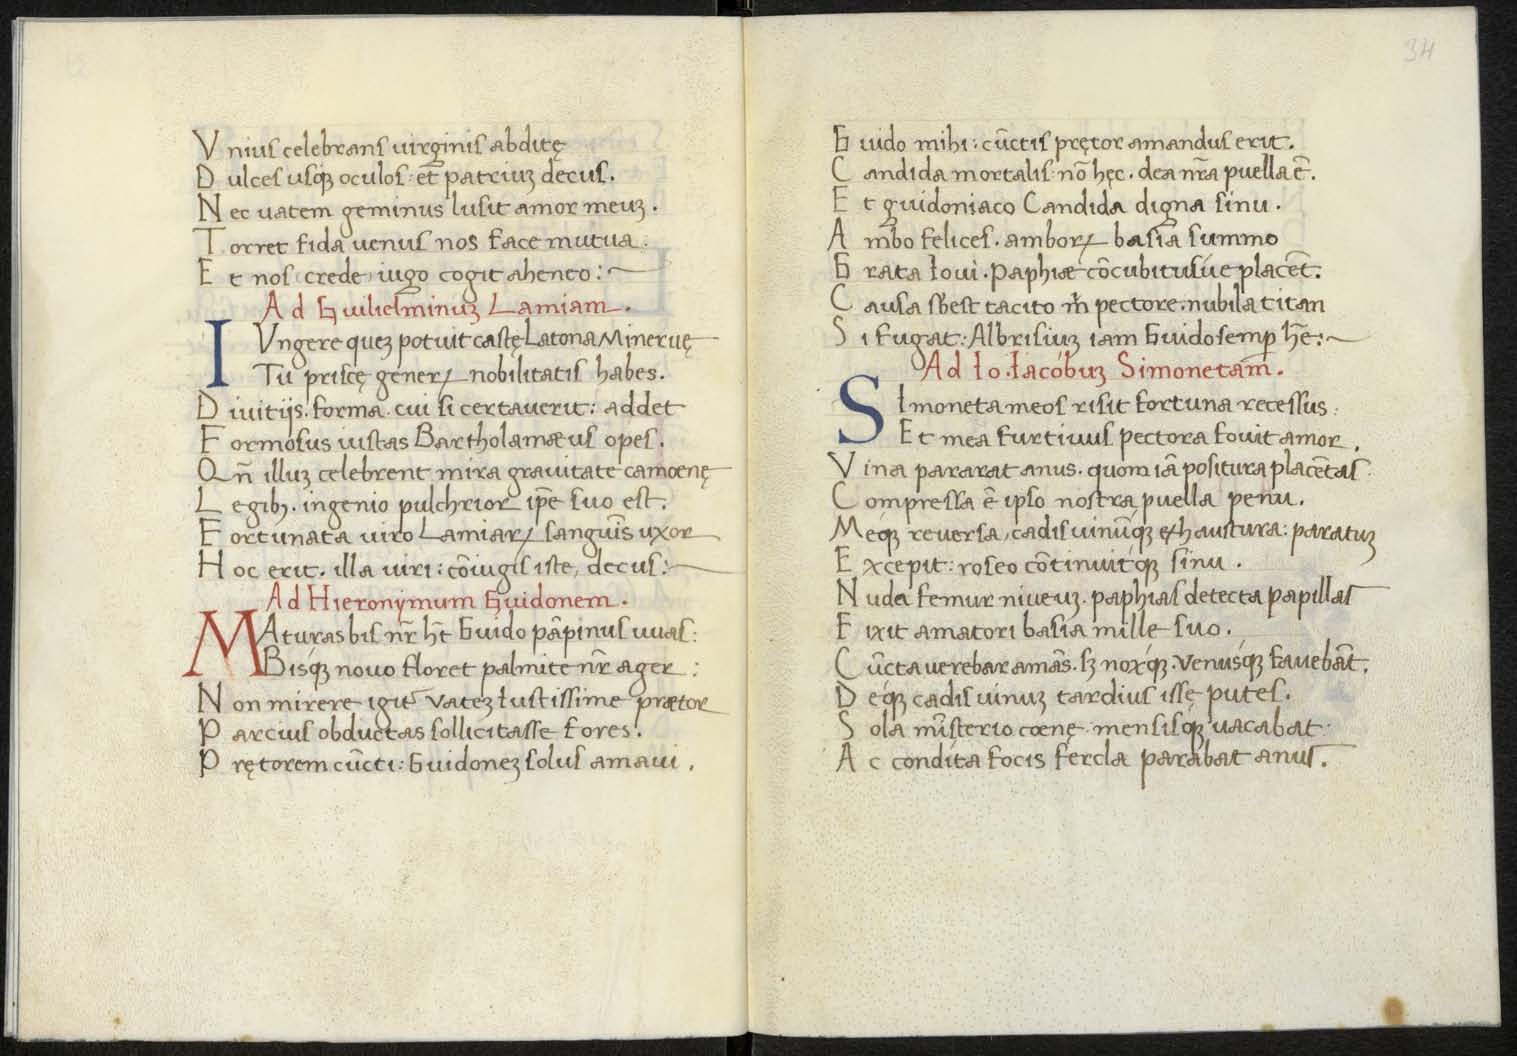 Vnius celebrans uirginis abditę
Dulces usqꝫ oculos: et patriuꝫ decus.
Nec uatem geminus lusit amor meuꝫ.
Torret fida uenus nos face mutua:
Et nos (crede) iugo cogit aheneo:~
Ad Guilielminuꝫ Lamiam.
IVngere queꝫ potuit castę Latona Mineruę
Tu priscę generꝝ nobilitatis habes.
Diuitijs. forma. cui si certauerit: addet
Formosus iustas Bartholamæus opes.
Qñ illuꝫ celebrent mira grauitate camoenę
Legibꝫ. ingenio pulchrior ip̄e suo est.
Fortunata uiro Lamiaꝝ sangui̅s uxor
Hoc erit. illa uiri: co̅iugis iste, decus:~
Ad Hieronymum Guidonem.
MAturas bis nr̄ ht̄ Guido pa̅pinus uuas:
Bisqꝫ nouo floret palmite nr̄ ager:
Non mirere igit᷑ vateꝫ Iustissime prætor
Parcius obductas sollicitasse fores.
Prętorem cu̅cti: Guidoneꝫ solus amaui.
34
Guido mihi: cu̅ctis prętor amandus erit.
Candida mortalis: no̅ hęc. dea nr̄a puella e̅.
Et guidoniaco Candida digna sinu.
Ambo felices. amboꝝ basia summo
Grata Ioui. Paphiæ co̅cubitusúe place̅t.
Causa sb̅est tacito m̅ pectore. nubila titan
Si fugat: Albrisiuꝫ iam Guido semꝑ he̅t:~
Ad Io. Iacóbuꝫ Simonetam.
SImoneta meos risit fortuna recessus:
Et mea furtiuus pectora fouit amor.
Vina pararat anus. quom ia̅ positura place̅tas
Compressa e̅ ipso nostra puella penu.
Meqꝫ reuersa, cadis uinu̅qꝫ exhaustura: paratuꝫ
Excepit: roseo co̅tinuitqꝫ sinu.
Nuda femur niueuꝫ. paphias detecta papillas
Fixit amatori basia mille suo.
Cu̅cta uerebar ama̅s. sꝫ noxqꝫ. Venusqꝫ faueba̅t.
Deqꝫ cadis uinuꝫ tardius issę putes.
Sola mi̅sterio cœnę mensisqꝫ uacabat
Ac condita focis fercla parabat anus.